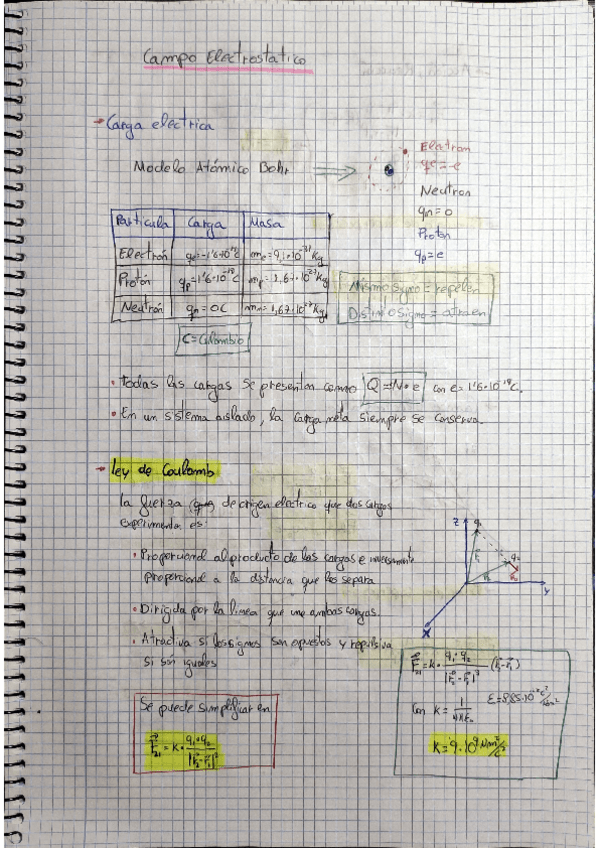 Campo Electrostatico
Carga electrica
Modelo Atómico Bohr ⇒
Electron
qe = -e
Neutron
qn = 0
Proton
qp = e
Particula Carga Masa
Electrón qe = -1'6·10⁻¹⁹C me = 9,1·10⁻³¹Kg
Protón qp = 1'6·10⁻¹⁹C mp = 1,67·10⁻²⁷Kg
Neutrón qn = 0C mn = 1,67·10⁻²⁷Kg
C = Culombio
Mismo signo = repelen
Distinto signo = atraen
• Todas las cargas se presentan como Q = N·e con e = 1'6·10⁻¹⁹C.
• En un sistema aislado, la carga neta siempre se conserva.
ley de Coulomb
la fuerza de origen electrico que dos cargas
experimenta es:
• Proporcional al producto de las cargas e inversamente
proporcional a la distancia que las separa
• Dirigida por la linea que une ambas cargas.
• Atractiva si los signos son opuestos y repulsiva
si son iguales
Z
Y
X
F₂₁ = k · q₁·q₂ / |r₂-r₁|³ (r₂-r₁)
Con k = 1 / 4πε₀
K = 9·10⁹ Nm²/C²
Se puede simplificar en
F₂₁ = k · q₁·q₂ / |r₂-r₁|²